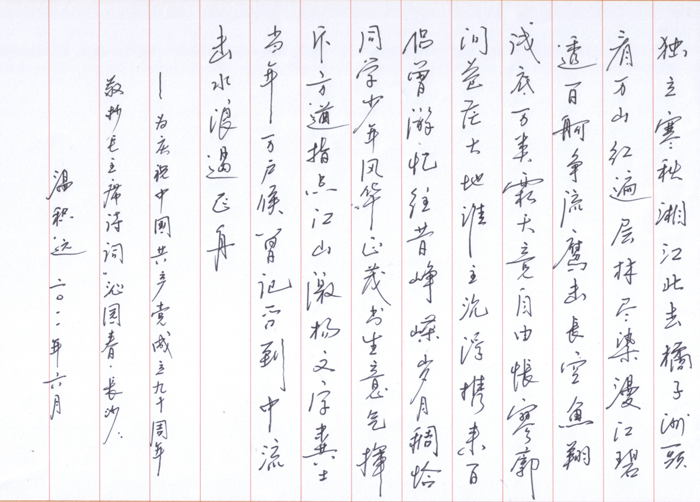 独立寒秋湘江此去橘子洲头
看万山红遍层林尽染漫江碧
透百舸争流鹰击长空鱼翔
浅底万类霜天竞自由怅寥廓
问苍茫大地谁主沉浮携来百
侣曾游忆往昔峥嵘岁月稠恰
同学少年风华正茂书生意气挥
斥方遒指点江山激扬文字粪土
当年—万户侯曾记否到中流
击水浪遏飞舟
—为庆祝中国共产党成立九十周年
敬抄毛主席诗词沁园春·长沙.
温积远 二〇一一年六月